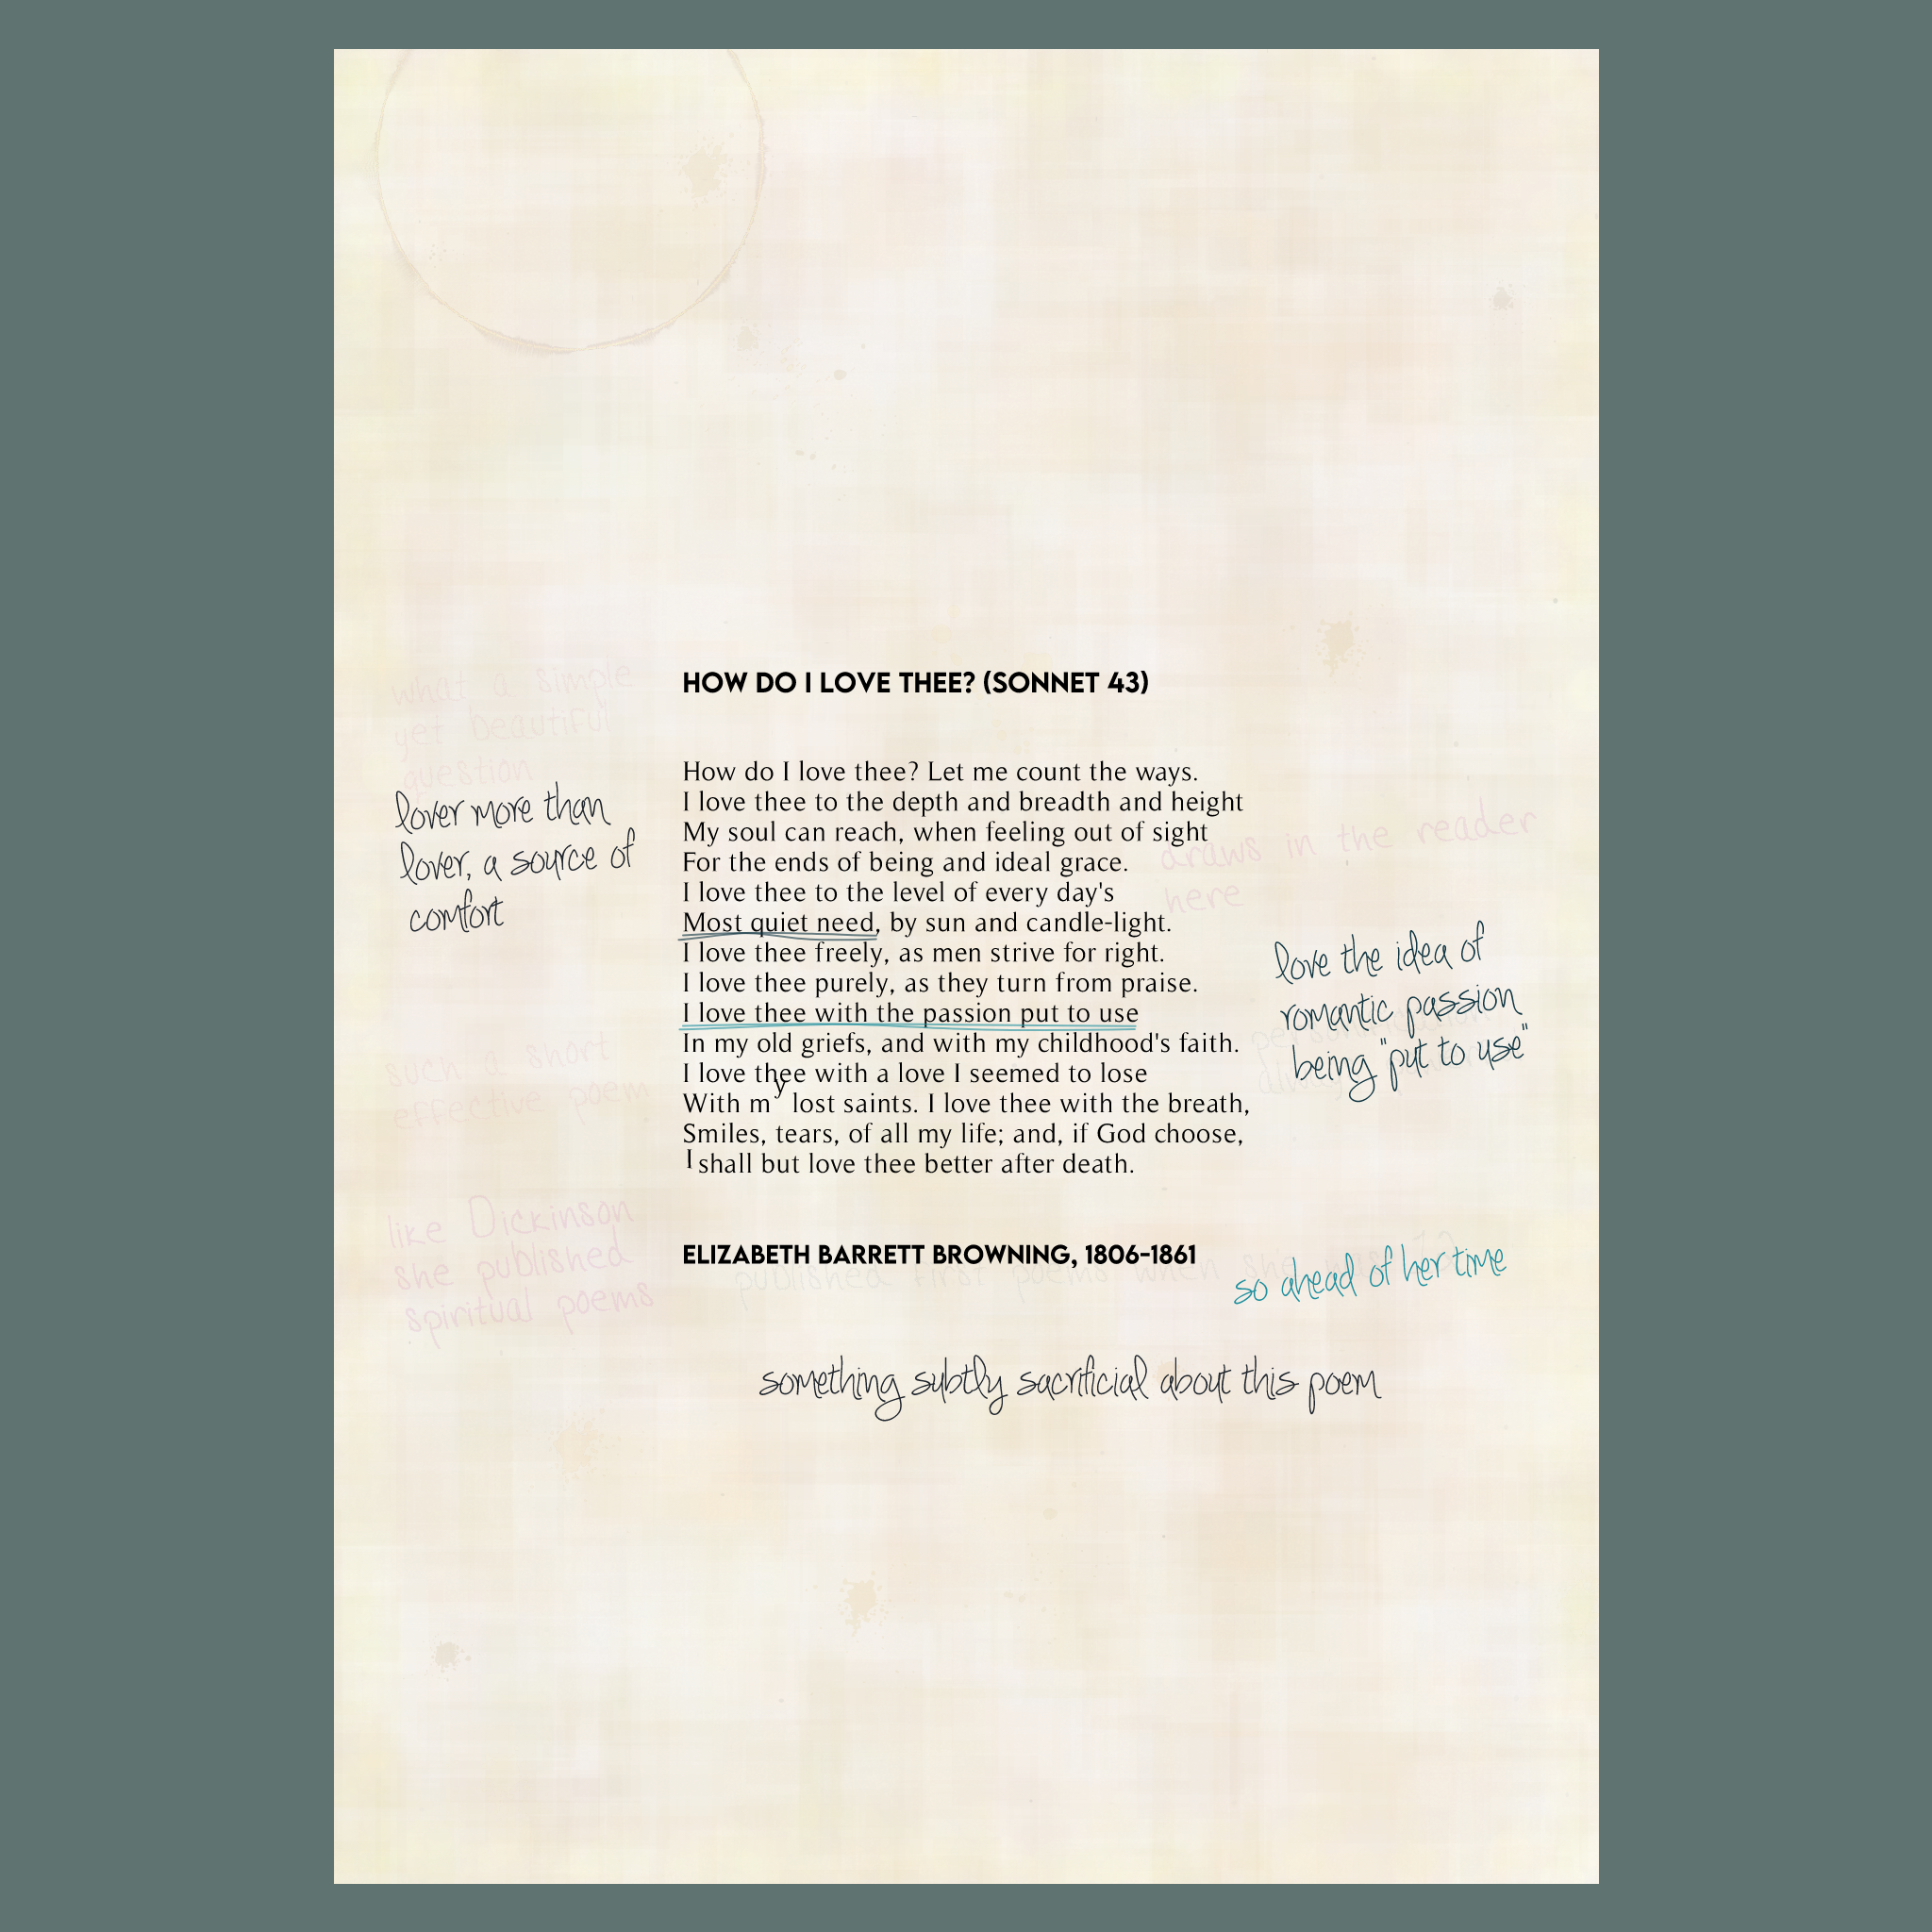 HOW DO I LOVE THEE? (SONNET 43)
How do I love thee? Let me count the ways.
I love thee to the depth and breadth and height
My soul can reach, when feeling out of sight
For the ends of being and ideal grace.
I love thee to the level of every day's
Most quiet need, by sun and candle-light.
I love thee freely, as men strive for right.
I love thee purely, as they turn from praise.
I love thee with the passion put to use
In my old griefs, and with my childhood's faith.
I love thee with a love I seemed to lose
With my lost saints. I love thee with the breath,
Smiles, tears, of all my life; and, if God choose,
I shall but love thee better after death.
ELIZABETH BARRETT BROWNING, 1806-1861
what a simple
yet beautiful
question
lover more than
lover, a source of
comfort
such a short
effective poem
like Dickinson
she published
spiritual poems
draws in the reader
here
love the idea of
romantic passion
being "put to use"
published first poems when she
so ahead of her time
something subtly sacrificial about this poem